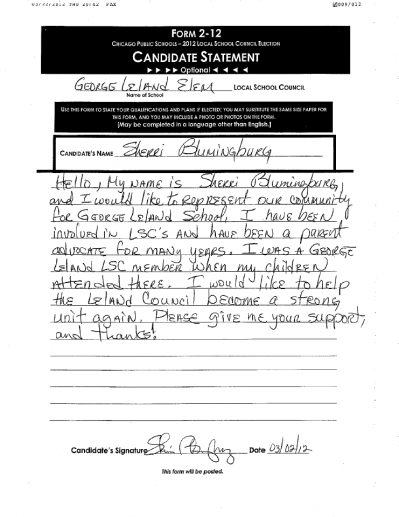 FORM 2-12
CHICAGO PUBLIC SCHOOLS – 2012 LOCAL SCHOOL COUNCIL ELECTION
CANDIDATE STATEMENT
► ► ► ► Optional ◄ ◄ ◄ ◄
GEORGE LELAND ELEM LOCAL SCHOOL COUNCIL
Name of School
USE THIS FORM TO STATE YOUR QUALIFICATIONS AND PLANS IF ELECTED; YOU MAY SUBSTITUTE THE SAME SIZE PAPER FOR
THIS FORM, AND YOU MAY INCLUDE A PHOTO OR PHOTOS ON THE FORM.
[May be completed in a language other than English.]
CANDIDATE'S NAME Sherri Blumingburg
Hello, My name is Sherri Blumingburg,
and I would like to represent our community
for George Leland School. I have been
involved in LSC's and have been a parent
advocate for many years. I was a George
Leland LSC member when my children
attended there. I would like to help
the Leland Council become a strong
unit again. Please give me your support,
and thanks!
Candidate's Signature Date 03/02/12
This form will be posted.